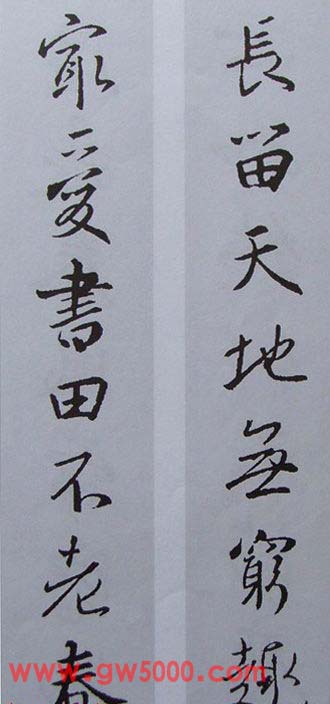 長留天地無窮趣
寂愛書田不老春
www.gw5000.com